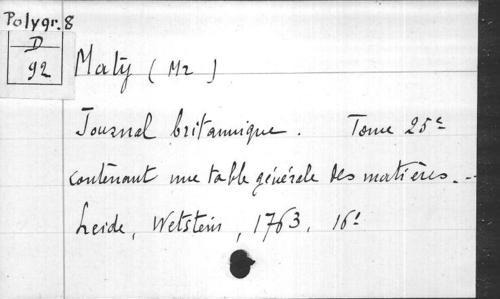 Polygr. 8
D
92
Maty (Mr)
Journal britannique. Tome 25e
contenant une table générale des matières. -
Leide, Wetstein, 1763, 16°